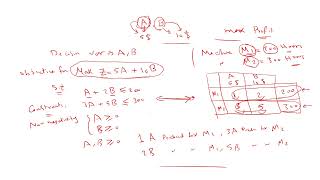 A B
5$ 10$
max Profit
Decision var → A, B
Machine M1 = 200 Hours
M2 = 300 Hours
objective for Max Z = 5A + 10B
S.t
A + 2B ≤ 200
Constraints 3A + 5B ≤ 300
Non negativity A ≥ 0
B ≥ 0
A, B ≥ 0
A B
5$ 10$
M1 1 2 200
M2 3 5 300
1A Product for M1, 3A Product for M2
2B " " M1, 5B " " M2